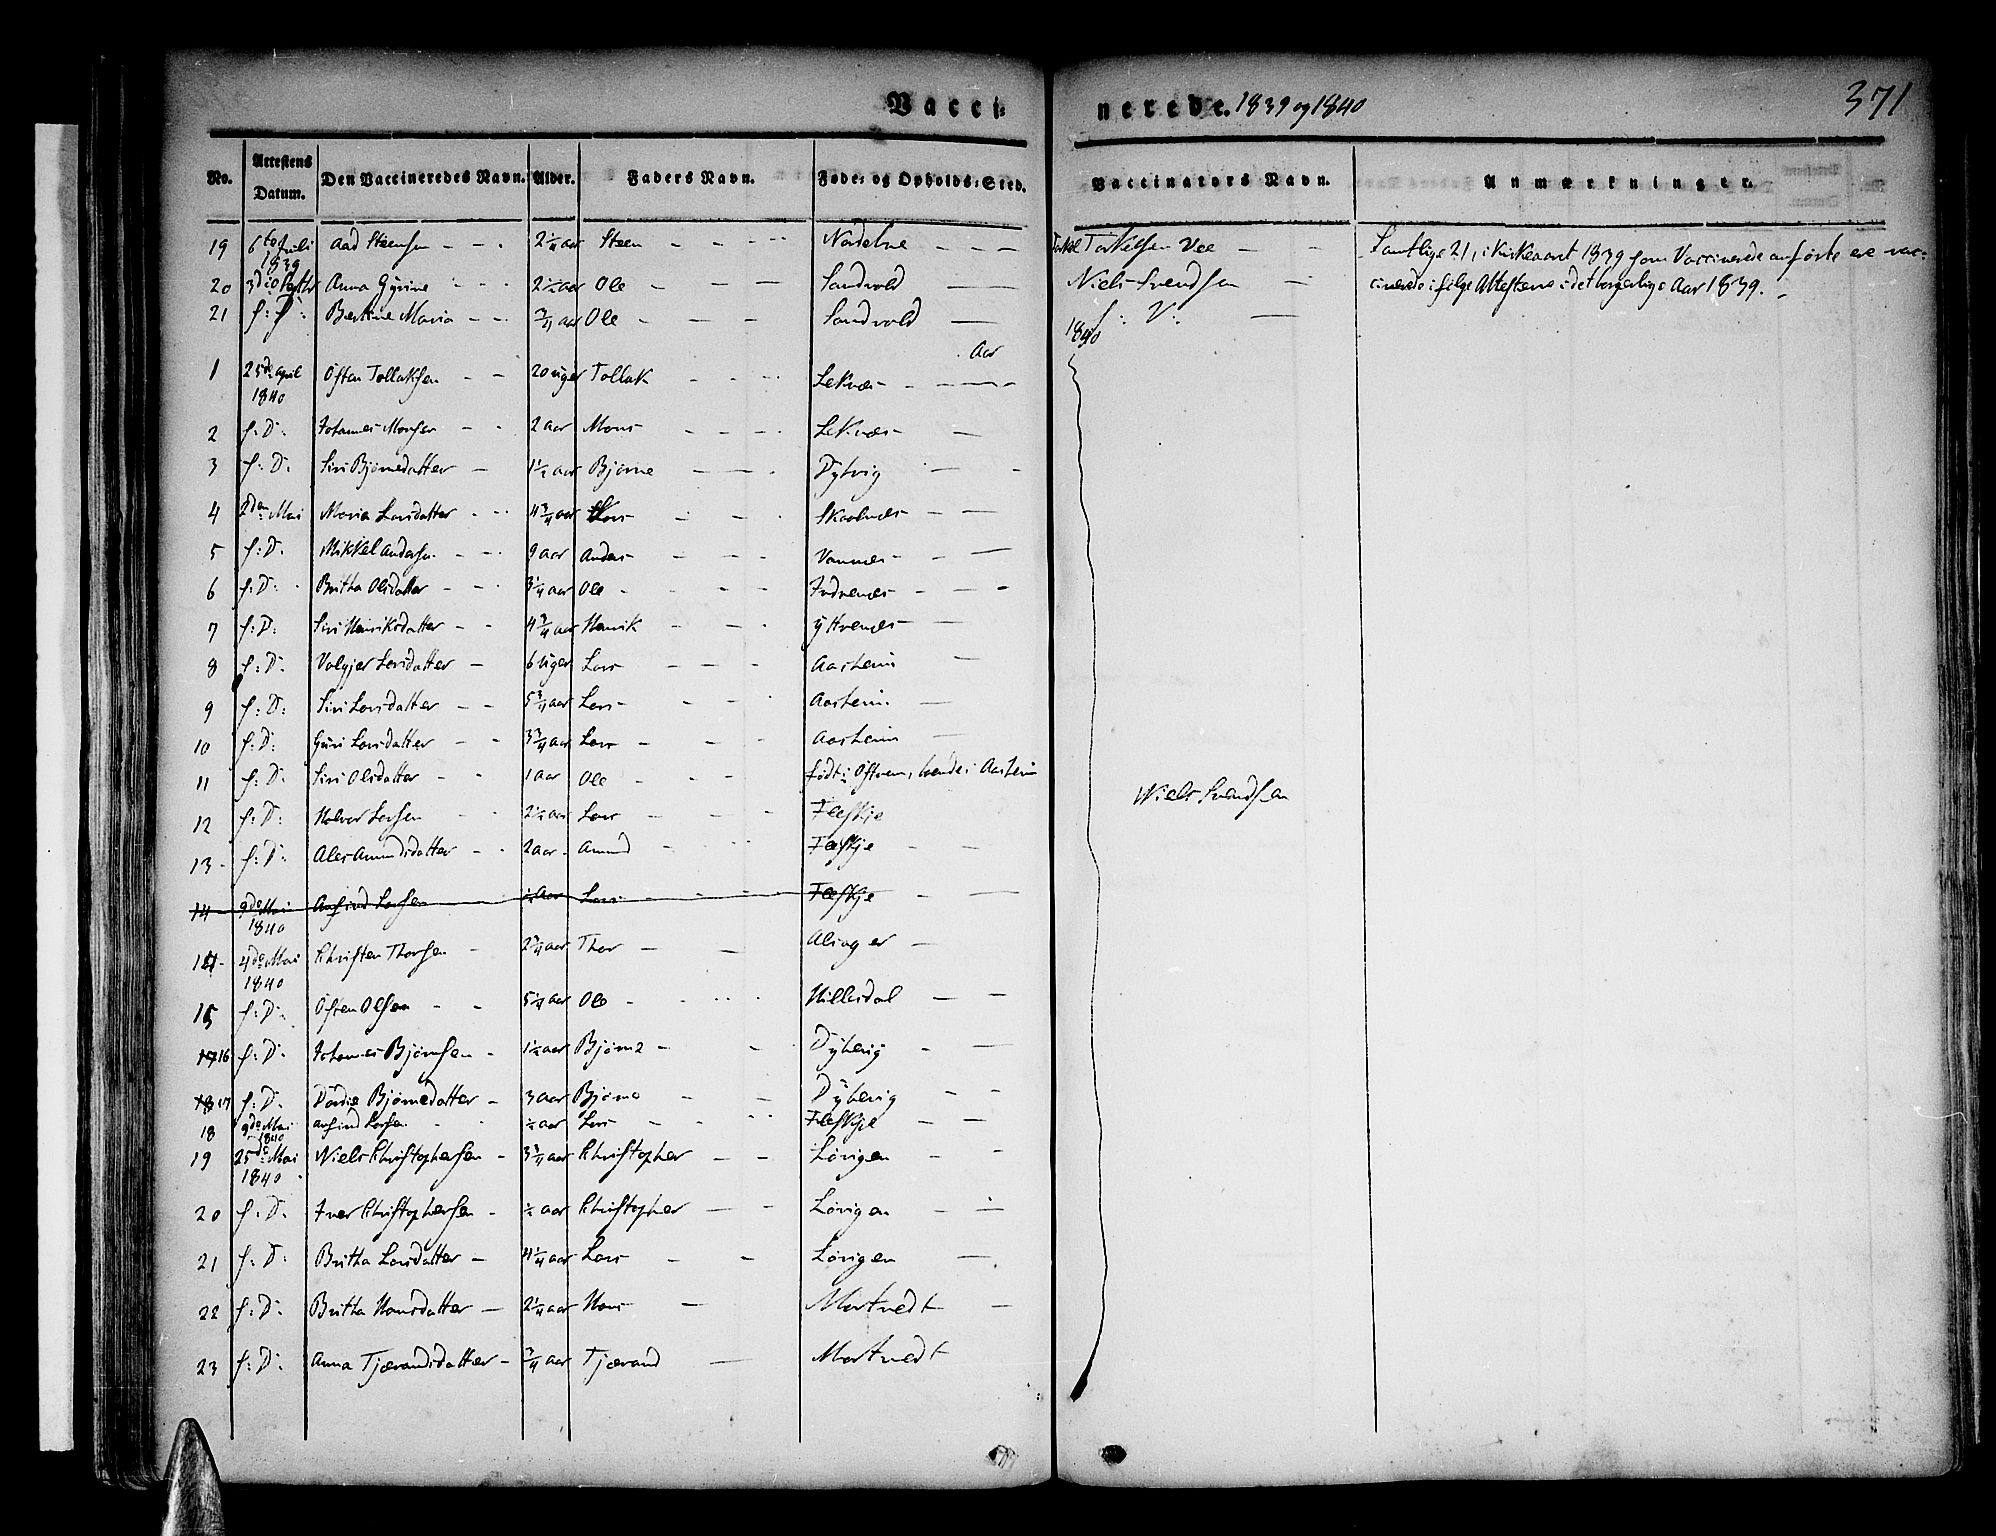 Vacci- nerede. 1839 og 1840 371
No. Attestens Datum. Den Vaccineredes Navn. Alder. Faders Navn. Føde- og Opholds-Sted. Vaccinators Navn. Anmærkninger.
19 6te Juli 1839 Aad Steensen 2 1/4 aar Steen Torkel Torkelsen Vee Samtlige 21, i Kirkeaaret 1839 som Vaccinerede anførte ere vac-
20 3die Anna Gyrine 2 1/2 aar Ole Sandvold Niels Svendsen cinerede ifølge Attesterne i det borgerlige Aar 1839.
21 Bertine Maria 3/4 aar Ole Sandvold
1840
Aar
1 25de April 1840 Østen Tollaksen 20 uger Tollak Lekvæ
2 s: D: Johannes Monsen 2 aar Mons Lekvæ
3 s: D: Siri Bjørnedatter 1 1/2 aar Bjørne Dytvig
4 2den Mai Maria Larsdatter 4 3/4 aar Lars Skaalnæs
5 s: D: Mikkel Andersen 9 aar Anders Vannæs
6 s: D: Britha Olsdatter 3 1/4 aar Ole Indrenæs
7 s: D: Siri Henriksdatter 4 3/4 aar Henrik Yttrenæs
8 s: D: Valgjer Larsdatter 6 uger Lars Aasheim
9 s: D: Siri Larsdatter 5 3/4 aar Lars Aasheim
10 s: D: Guri Larsdatter 3 3/4 aar Lars Aasheim
11 s: D: Siri Olsdatter 1 aar Ole født i Østrem, hende i Aasheim
Niels Svendsen
12 s: D: Halvor Larsen 2 1/2 aar Lars Fleskje
13 s: D: Ales Amundsdatter 2 aar Amund Fleskje
14 9de Mai 1840 Anfind Larsen 1/2 aar Lars Fleskje
14 4de Mai 1840 Christen Thorsen 2 3/4 aar Thor Alsager
15 s: D: Østen Olsen 5 1/4 aar Ole Hillesdal
17 16 s: D: Johannes Bjørnsen 1 1/2 aar Bjørne Dytvig
18 17 s: D: Dordie Bjørnedatter 3 aar Bjørne Dytvig
18 9de Mai 1840 Anfind Larsen 1/2 aar Lars Fleskje
19 25de Mai 1840 Niels Christophersen 3 3/4 aar Christopher Løvigen
20 s: D: Iver Christophersen 1/2 aar Christopher Løvigen
21 s: D: Britha Larsdatter 4 1/4 aar Lars Løvigen
22 s: D: Britha Hansdatter 2 1/4 aar Hans Martvedt
23 s: D: Anna Tjærandsdatter 3/4 aar Tjærand Martvedt